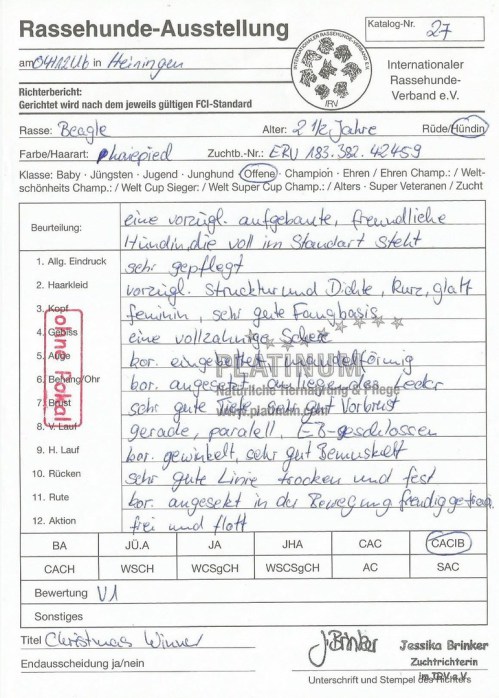 Rassehunde-Ausstellung
Katalog-Nr. 27
am 04/12/16 in Heiningen
INTERNATIONALER RASSEHUNDE-VERBAND E.V.
IRV
Internationaler
Rassehunde-
Verband e.V.
Richterbericht:
Gerichtet wird nach dem jeweils gültigen FCI-Standard
Rasse: Beagle Alter: 2 1/2 Jahre Rüde/Hündin
Farbe/Haarart: harepied Zuchtb.-Nr.: ERV 183.382.42459
Klasse: Baby · Jüngsten · Jugend · Junghund · Offene · Champion · Ehren / Ehren Champ.: / Welt-
schönheits Champ.: / Welt Cup Sieger: / Welt Super Cup Champ.: / Alters · Super Veteranen / Zucht
Beurteilung: eine vorzügl. aufgebaute, freundliche
Hündin, die voll im Standart steht
1. Allg. Eindruck sehr gepflegt
2. Haarkleid vorzügl. Struktur und Dichte, kurz, glatt
3. Kopf feminin, sehr gute Fangbasis
4. Gebiss eine vollzahnige Schere
5. Auge kor. eingebettet mandelförmig
6. Behang/Ohr kor. angesetzt anliegendes Leder
7. Brust sehr gute Tiefe gut Vorbrust
8. V. Lauf gerade, paralell, EB-geschlossen
9. H. Lauf kor. gewinkelt, sehr gut Bemuskelt
10. Rücken sehr gute Linie trocken und fest
11. Rute kor. angesetzt in der Bewegung freudig getragen
12. Aktion frei und flott
ohne Pokal
PLATINUM
Natürliche Hernahrung & Pflege
www.platinum.
BA JÜ.A JA JHA CAC CACIB
CACH WSCH WCSgCH WSCSgCH AC SAC
Bewertung V1
Sonstiges
Titel Christmas Winner
Endausscheidung ja/nein
J. Brinker
Jessika Brinker
Zuchtrichterin
im IRV e.V.
Unterschrift und Stempel des Richters